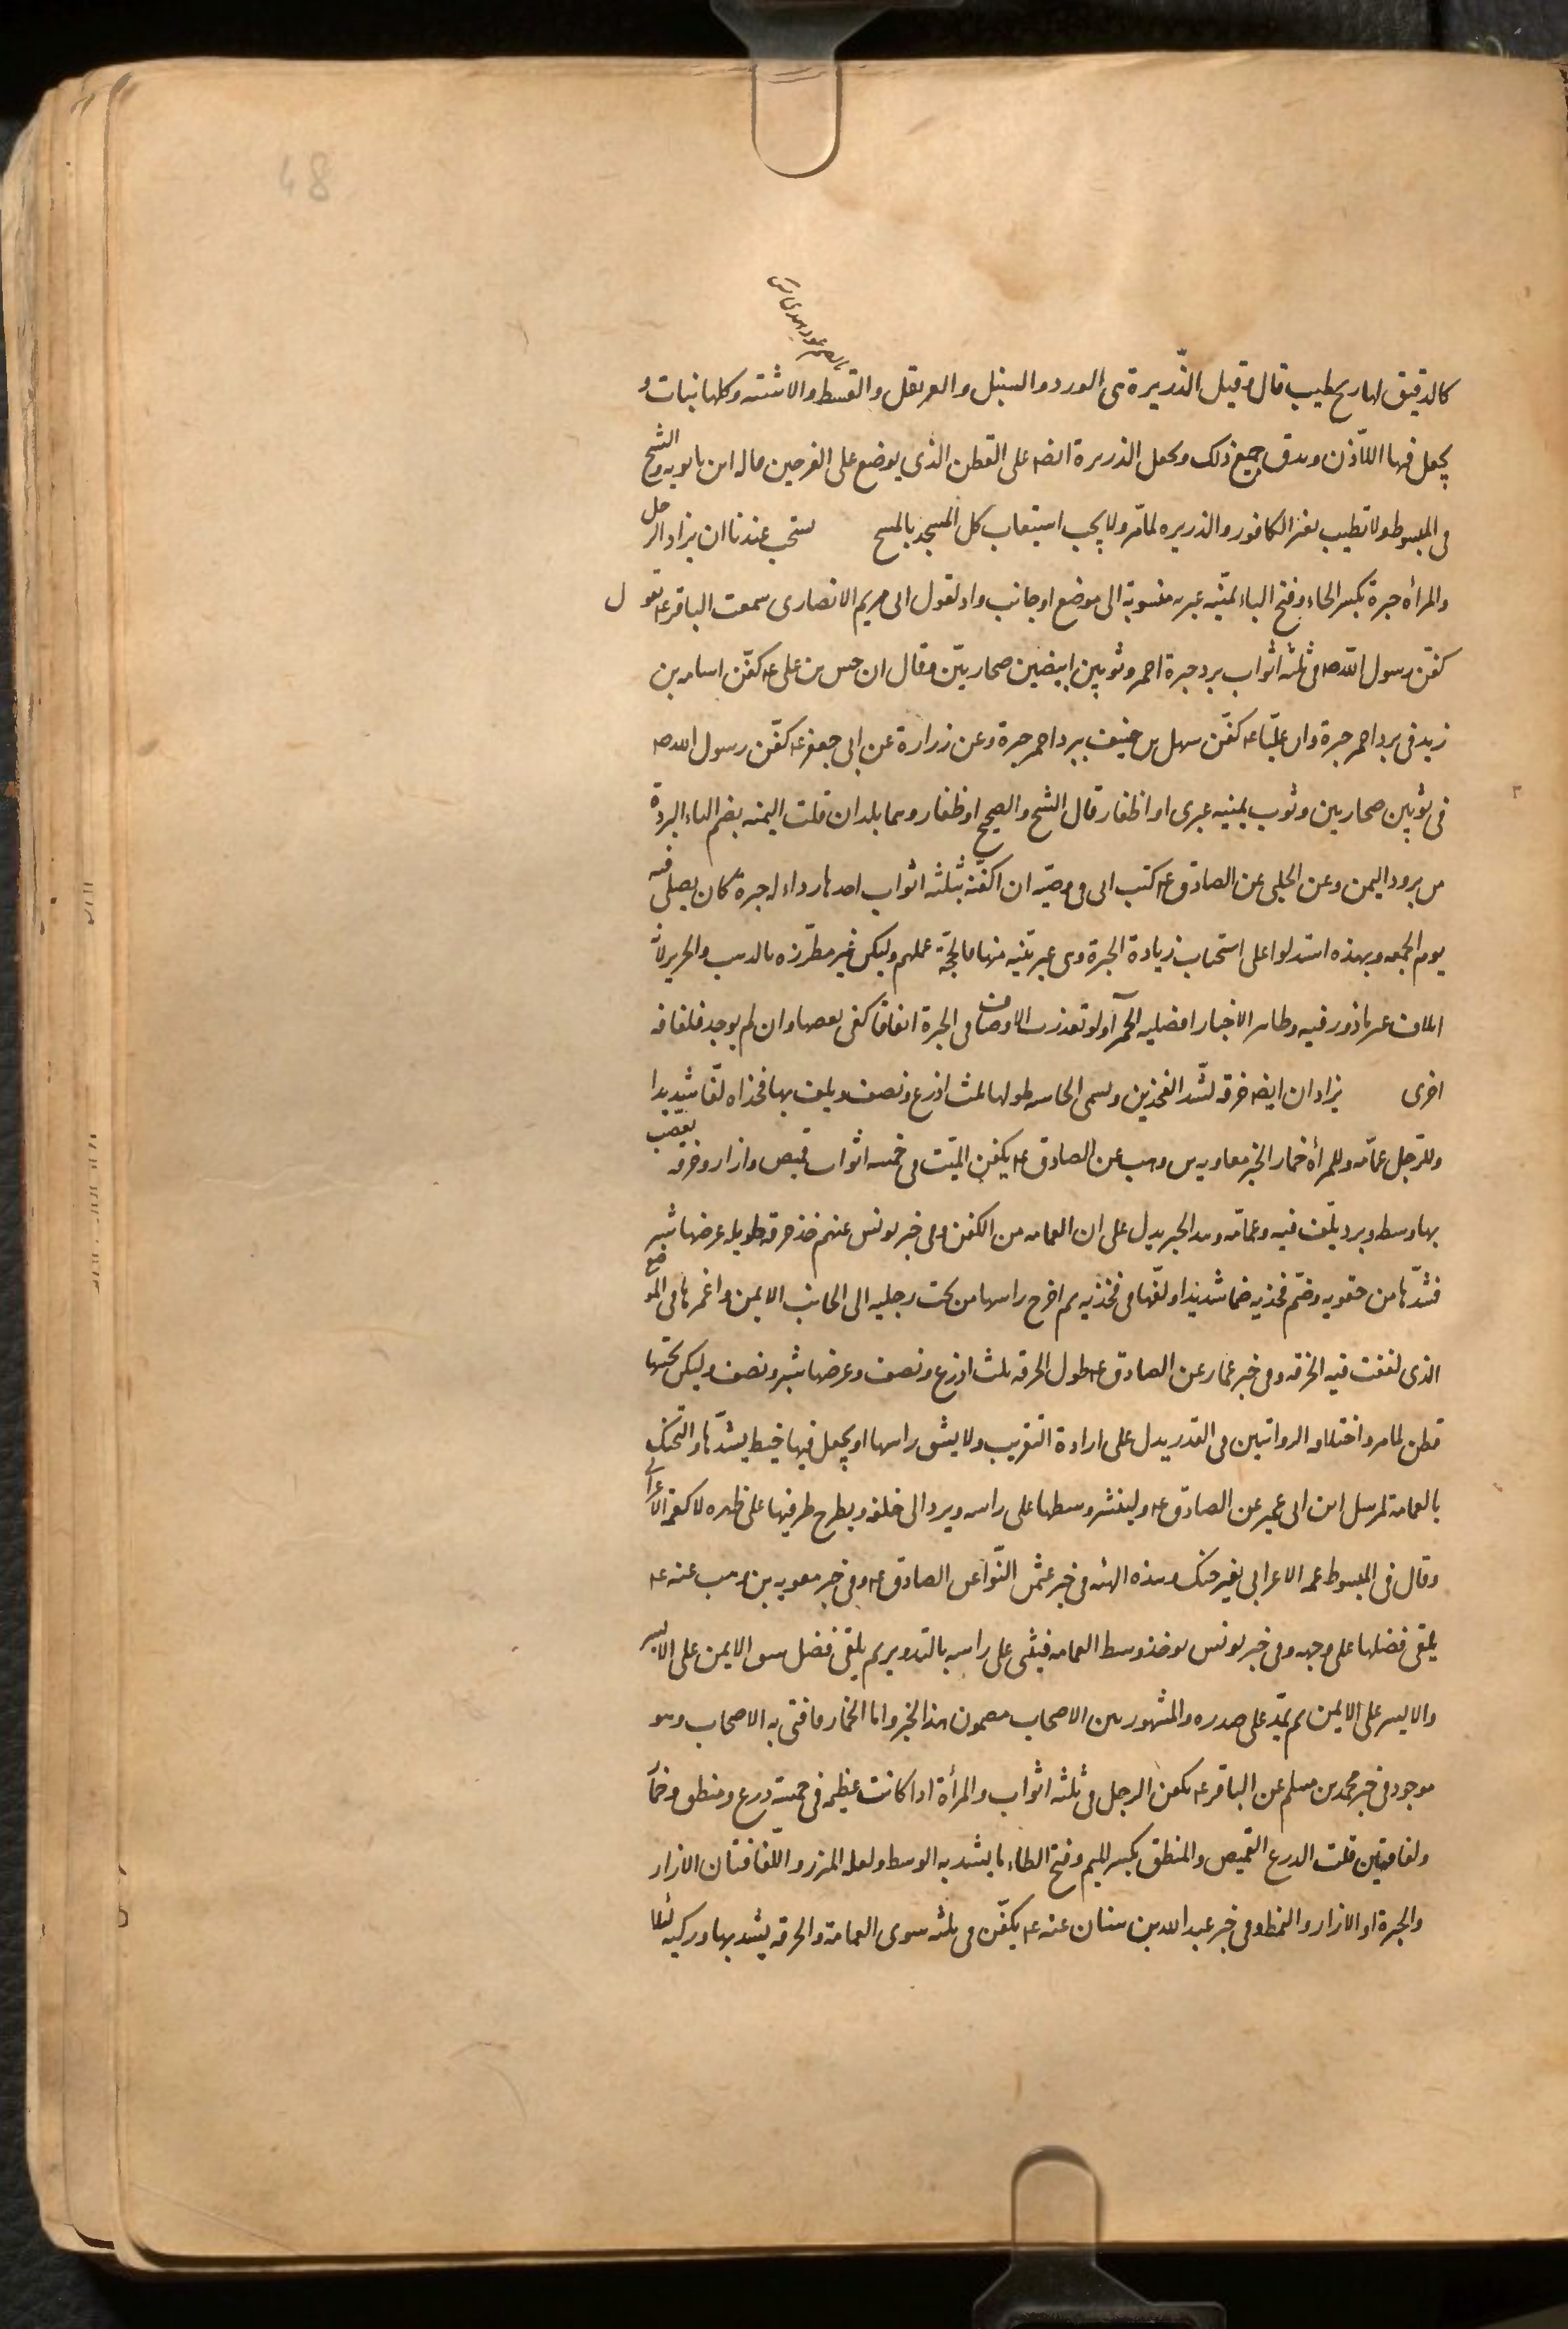 48
كالدقيق لها ريح طيب قال وقيل الذّريرة هى الورد والسنبل والقرنفل والقسط والاشنه وكلها نبات و
يجعل فيها اللاذن ويدق جميع ذلك ويجعل الذريرة ايضا على القطن الذى يوضع على الفرجين قاله ابن بابويه والشيخ
فى المبسوط ولا تطيب بغير الكافور والذريره لما مرّ ولا يجب استيعاب كل المسجد بالمسح يستحب عندنا ان يزاد الرجل
والمرأة حبرة بكسر الحاء وفتح الباء يمنيّه عبريه منسوبة الى موضع او جانب واد لقول ابى مريم الانصارى سمعت الباقر ع يقول
كفّن رسول الله ص فى ثلثه اثواب برد حبرة احمر وثوبين ابيضين صحاريّين وقال ان حسن بن على ع كفّن اسامه بن
زيد فى برد احمر حبرة وان عليّا ع كفّن سهل بن حنيف ببرد احمر حبرة وعن زرارة عن ابى جعفر ع كفّن رسول الله ص
فى ثوبين صحاريين وثوب يمنيه عبرى او اظفار قال الشيخ والصحيح او ظفار وهما بلدان قلت اليمنه بضم الياء البردة
من برود اليمن وعن الحلبى عن الصادق ع كتب ابى فى وصيّته ان اكفّنه بثلثه اثواب احدها رداء له حبرة كان يصلى فيه
يوم الجمعه وبهذه استدلوا على استحباب زيادة الحبرة وفى غير تنبيه منها مالحجّة عملهم وليكن غير مطرّزه بالذهب والحرير لانه
اتلاف غير ماذون فيه وظاهر الاخبار افضليه الحمراء ولو تعذرت الاوصاف فى الحبرة اتفاقا كفى بعضها وان لم يوجد فلفافه
اخرى يزاد ان ايضا خرقه لشدّ الفخذين وتسمى الخامسه طولها ثلث اذرع ونصف ويلف بها فخذاه لفّا شديدا
وللرّجل عمّامه وللمرأة خمار لخبر معاويه بن وهب عن الصادق ع يكفّن الميّت فى خمسه اثواب قميص وازار وخرقه يعصّب
بها وسطه وبرد يلّف فيه وعمّامه وهذا الخبر يدل على ان العمامه من الكفن وفى خبر يونس عنهم خذ خرقه طويله عرضها شبر
فشدّها من حقويه وضمّ فخذيه ضما شديدا ولفّها فى فخذيه ثم اخرج راسها من تحت رجليه الى الجانب الايمن واغمزها فى الموضع
الذى لففت فيه الخرقه وفى خبر عمار عن الصادق ع طول الخرقه ثلث اذرع ونصف وعرضها شبر ونصف وليكن تحتها
قطن لما مر واختلاف الروايتين فى القدر يدل على ارادة التقريب ولا يشق راسها او يجعل فيها خيط يشدّها والتحنك
بالعمامة لمرسل ابن ابى عمير عن الصادق ع ولينشر وسطها على راسه ويرد الى خلفه ويطرح طرفيها على ظهره لا كعمة الاعرابى
وقال فى المبسوط عمة الاعرابى بغير حنك وهذه الهيئه فى خبر عثمن النّوا عن الصادق ع وفى خبر معويه بن وهب عنه ع
يلقى فضلها على وجهه وفى خبر يونس يوخذ وسط العمامه فيثنى على راسه بالتدوير ثم يلقى فضل شق الايمن على الايسر
والايسر على الايمن ثم يمدّ على صدره والمشهور بين الاصحاب مضمون هذا الخبر واما الخمار فافتى به الاصحاب وهو
موجود فى خبر محمد بن مسلم عن الباقر ع يكفن الرجل فى ثلثه اثواب والمرأة اذا كانت عظيمه فى خمسة درع ومنطق وخمار
ولفافتين قلت الدرع القميص والمنطق بكسر الميم وفتح الطاء ما يشد به الوسط ولعله المئزر واللفافتان الازار
والحبرة او الازار والنمط وفى خبر عبد الله بن سنان عنه ع يكفّن فى ثلثه سوى العمامة والخرقه يشد بها وركيه لئلا